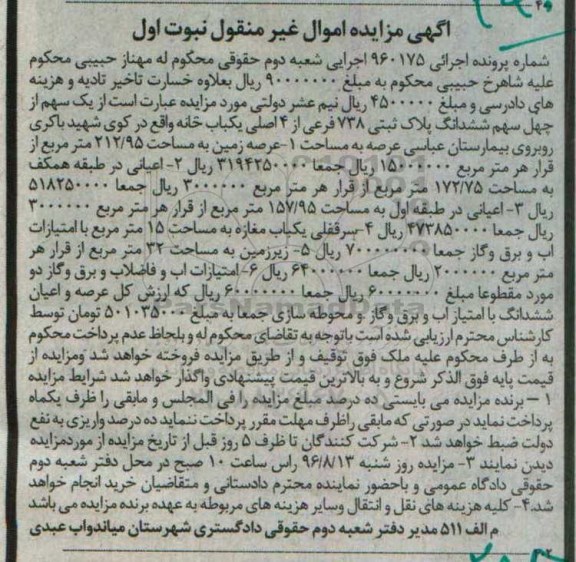 آگهی مزایده اموال غیر منقول نوبت اول
شماره پرونده اجرائی ۹۶۰۱۷۵ اجرایی شعبه دوم حقوقی محکوم له مهناز حبیبی محکوم
علیه شاهرخ حبیبی محکوم به مبلغ ۹۰۰۰۰۰۰۰ ریال بعلاوه خسارت تاخیر تادیه و هزینه
های دادرسی و مبلغ ۴۵۰۰۰۰۰ ریال نیم عشر دولتی مورد مزایده عبارت است از یک سهم از
چهل سهم ششدانگ پلاک ثبتی ۷۳۸ فرعی از ۴ اصلی یکباب خانه واقع در کوی شهید باکری
روبروی بیمارستان عباسی عرصه به مساحت ۱-عرصه زمین به مساحت ۲۱۲/۹۵ متر مربع از
قرار هر متر مربع ۱۵۰۰۰۰۰۰ ریال جمعا ۳۱۹۴۲۵۰۰۰۰ ریال ۲- اعیانی در طبقه همکف
به مساحت ۱۷۲/۷۵ متر مربع از قرار هر متر مربع ۳۰۰۰۰۰۰ ریال جمعا ۵۱۸۲۵۰۰۰۰
ریال ۳- اعیانی در طبقه اول به مساحت ۱۵۷/۹۵ متر مربع از قرار هر متر مربع ۳۰۰۰۰۰۰
ریال جمعا ۴۷۳۸۵۰۰۰۰ ریال ۴-سرقفلی یکباب مغازه به مساحت ۱۵ متر مربع با امتیازات
اب و برق وگاز جمعا ۷۰۰۰۰۰۰۰۰ ریال ۵- زیرزمین به مساحت ۳۲ متر مربع از قرار هر
متر مربع ۲۰۰۰۰۰۰ ریال جمعا ۶۴۰۰۰۰۰۰ ریال ۶- امتیازات اب و فاضلاب و برق وگاز دو
مورد مقطوعا مبلغ ۶۰۰۰۰۰۰۰ ریال جمعا ۶۰۰۰۰۰۰۰ ریال که ارزش کل عرصه و اعیان
ششدانگ با امتیاز اب و برق وگاز و محوطه سازی جمعا به مبلغ ۵۰۱۰۳۵۰۰۰ تومان توسط
کارشناس محترم ارزیابی شده است باتوجه به تقاضای محکوم له و بلحاظ عدم پرداخت محکوم
به از طرف محکوم علیه ملک فوق توقیف و از طریق مزایده فروخته خواهد شد ومزایده از
قیمت پایه فوق الذکر شروع و به بالاترین قیمت پیشنهادی واگذار خواهد شد شرایط مزایده
۱ – برنده مزایده می بایستی ده درصد مبلغ مزایده را فی المجلس و مابقی را ظرف یکماه
پرداخت نماید در صورتی که مابقی راظرف مهلت مقرر پرداخت ننماید ده درصد واریزی به نفع
دولت ضبط خواهد شد ۲- شرکت کنندگان تا ظرف ۵ روز قبل از تاریخ مزایده از موردمزایده
دیدن نمایند ۳- مزایده روز شنبه ۹۶/۸/۱۳ راس ساعت ۱۰ صبح در محل دفتر شعبه دوم
حقوقی دادگاه عمومی و باحضور نماینده محترم دادستانی و متقاضیان خرید انجام خواهد
شد.۴- کلیه هزینه های نقل و انتقال وسایر هزینه های مربوطه به عهده برنده مزایده می باشد
م الف ۵۱۱ مدیر دفتر شعبه دوم حقوقی دادگستری شهرستان میاندواب عبدی